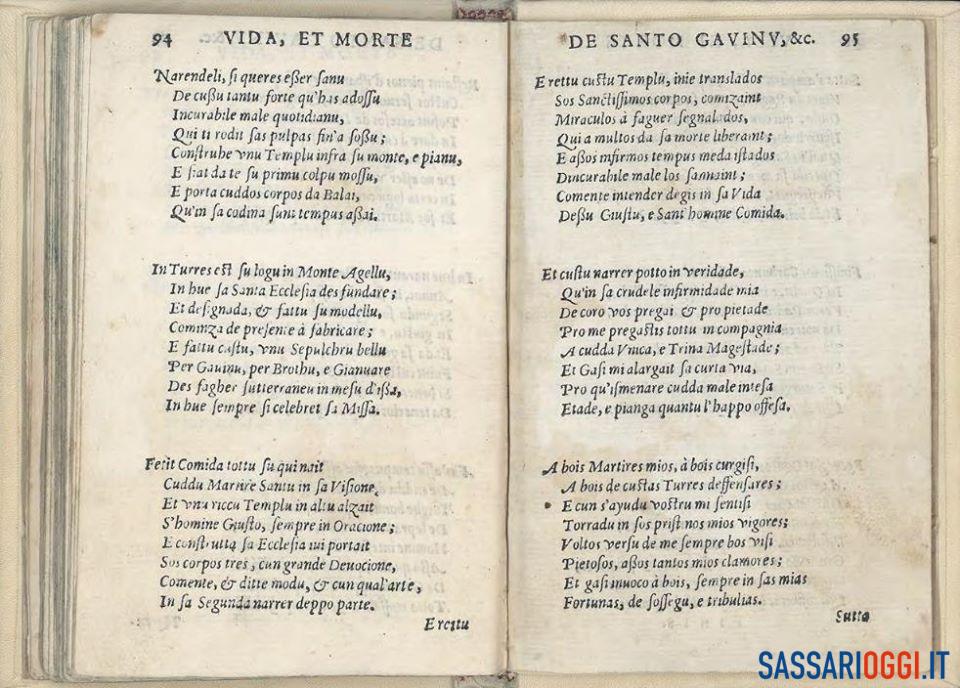 94 VIDA, ET MORTE
Narendeli, si queres eßer sanu
De cußu tantu forte qu'has adossu
Incurabile male quotidianu,
Qui ti rodit sas pulpas fin'a soßu;
Construhe vnu Templu infra su monte, e pianu,
E siat da te su primu colpu mossu,
E porta cuddos corpos da Balai,
Qu'in sa codina sunt tempus aßai.
In Turres est su logu in Monte Agellu,
In hue sa Santa Ecclesia des fundare;
Et designada, & fattu su modellu,
Cominza de presente à fabricare;
E fattu custu, vnu Sepulchru bellu
Per Gauinu, per Brothu, e Gianuare
Des fagher sutterraneu in mesu d'ißa,
In hue sempre si celebret sa Missa.
Fetit Comida tottu su qui nait
Cuddu Martire Santu in sa Visione,
Et vnu riccu Templu in altu alzait
S'homine Giusto, sempre in Oracione;
E construtta sa Ecclesia iui portait
Sos corpos tres, cun grande Deuocione,
Comente, & ditte modu, & cun qual'arte,
In sa Segunda narrer deppo parte.
Erettu
DE SANTO GAVINV, &c. 95
Erettu custu Templu, inie translados
Sos Sanctissimos corpos, comizaint
Miraculos à faguer segnalados,
Qui a multos da sa morte liberaint;
E aßos infirmos tempus meda istados
Dincurabile male los sanaint;
Comente intender degis in sa Vida
Deßu Giustu, e Sant'homine Comida.
Et custu narrer potto in veridade,
Qu'in sa crudele infirmidade mia
De coro vos pregai & pro pietade
Pro me pregastis tottu in compagnia
A cudda Vnica, e Trina Magestade;
Et Gasi mi alargait sa curta via,
Pro qu'ismenare cudda male intesa
Etade, e pianga quantu l'happo offesa.
A bois Martires mios, à bois curgisi,
A bois de custas Turres deffensares;
E cun s'ayudu vostru mi sentisi
Torradu in sos pristinos mios vigores;
Voltos versu de me sempre bos visi
Pietosos, aßos tantos mios clamores;
Et gasi inuoco à bois, sempre in sas mias
Fortunas, de sossegu, e tribulias.
Sutta
SASSARIOGGI.IT